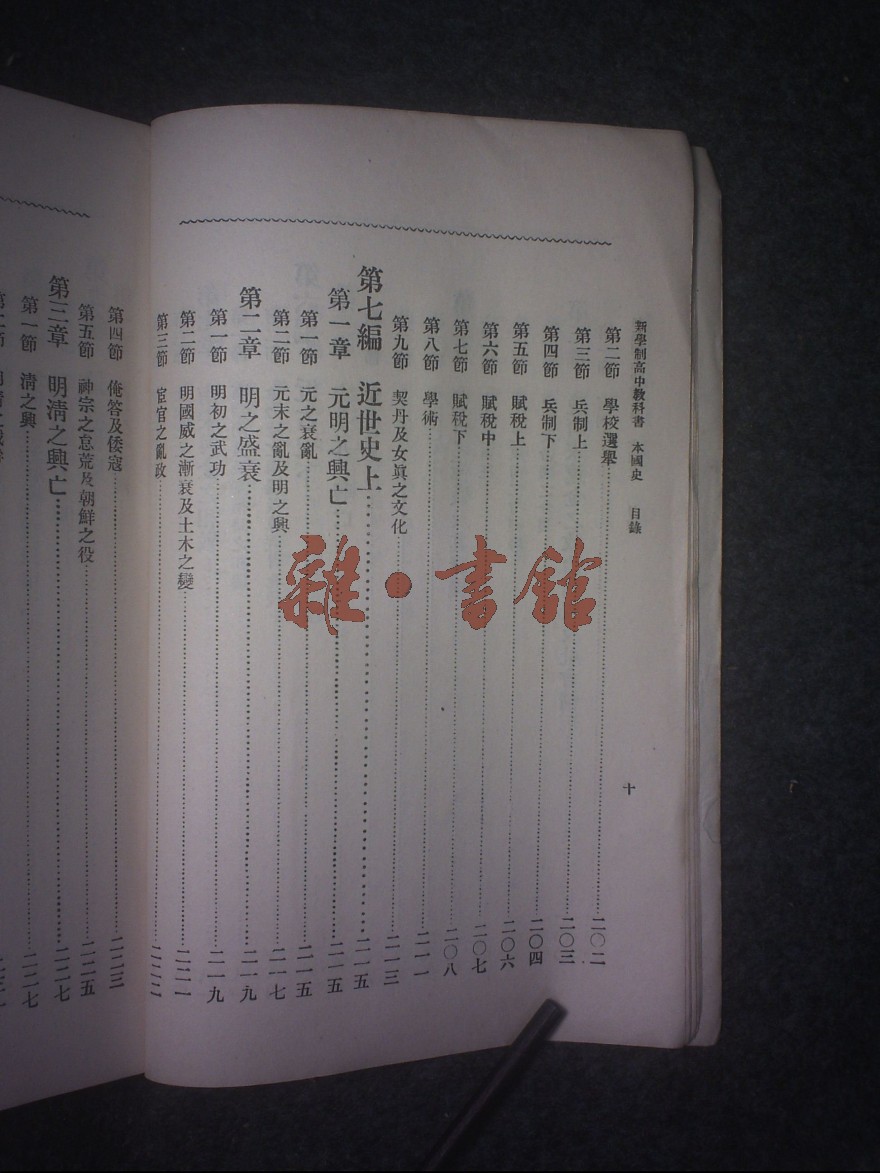 新學制高中教科書 本國史 目錄 十
第二節 學校選舉 二〇二
第三節 兵制上 二〇三
第四節 兵制下 二〇四
第五節 賦稅上 二〇六
第六節 賦稅中 二〇七
第七節 賦稅下 二〇八
第八節 學術 二一一
第九節 契丹及女眞之文化 二一三
第七編 近世史上 二一五
第一章 元明之興亡 二一五
第一節 元之衰亂 二一五
第二節 元末之亂及明之興 二一七
第二章 明之盛衰 二一九
第一節 明初之武功 二一九
第二節 明國威之漸衰及土木之變 二二一
第三節 宦官之亂政 二二二
第四節 俺答及倭寇 二二三
第五節 神宗之怠荒及朝鮮之役 二二五
第三章 明清之興亡 二二七
第一節 清之興 二二七
雜·書館